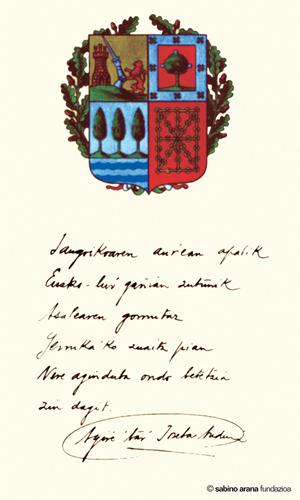 Jaungoikoaren auŕean apalik
Eusko-luŕ gañian zutunik
Asabearen gomutaz
Gernika'ko zuaitz pian
Nere aginduba ondo betetzia
zin dagit.
Agiŕe'taŕ Joseba Andoni
© sabino arana fundazioa